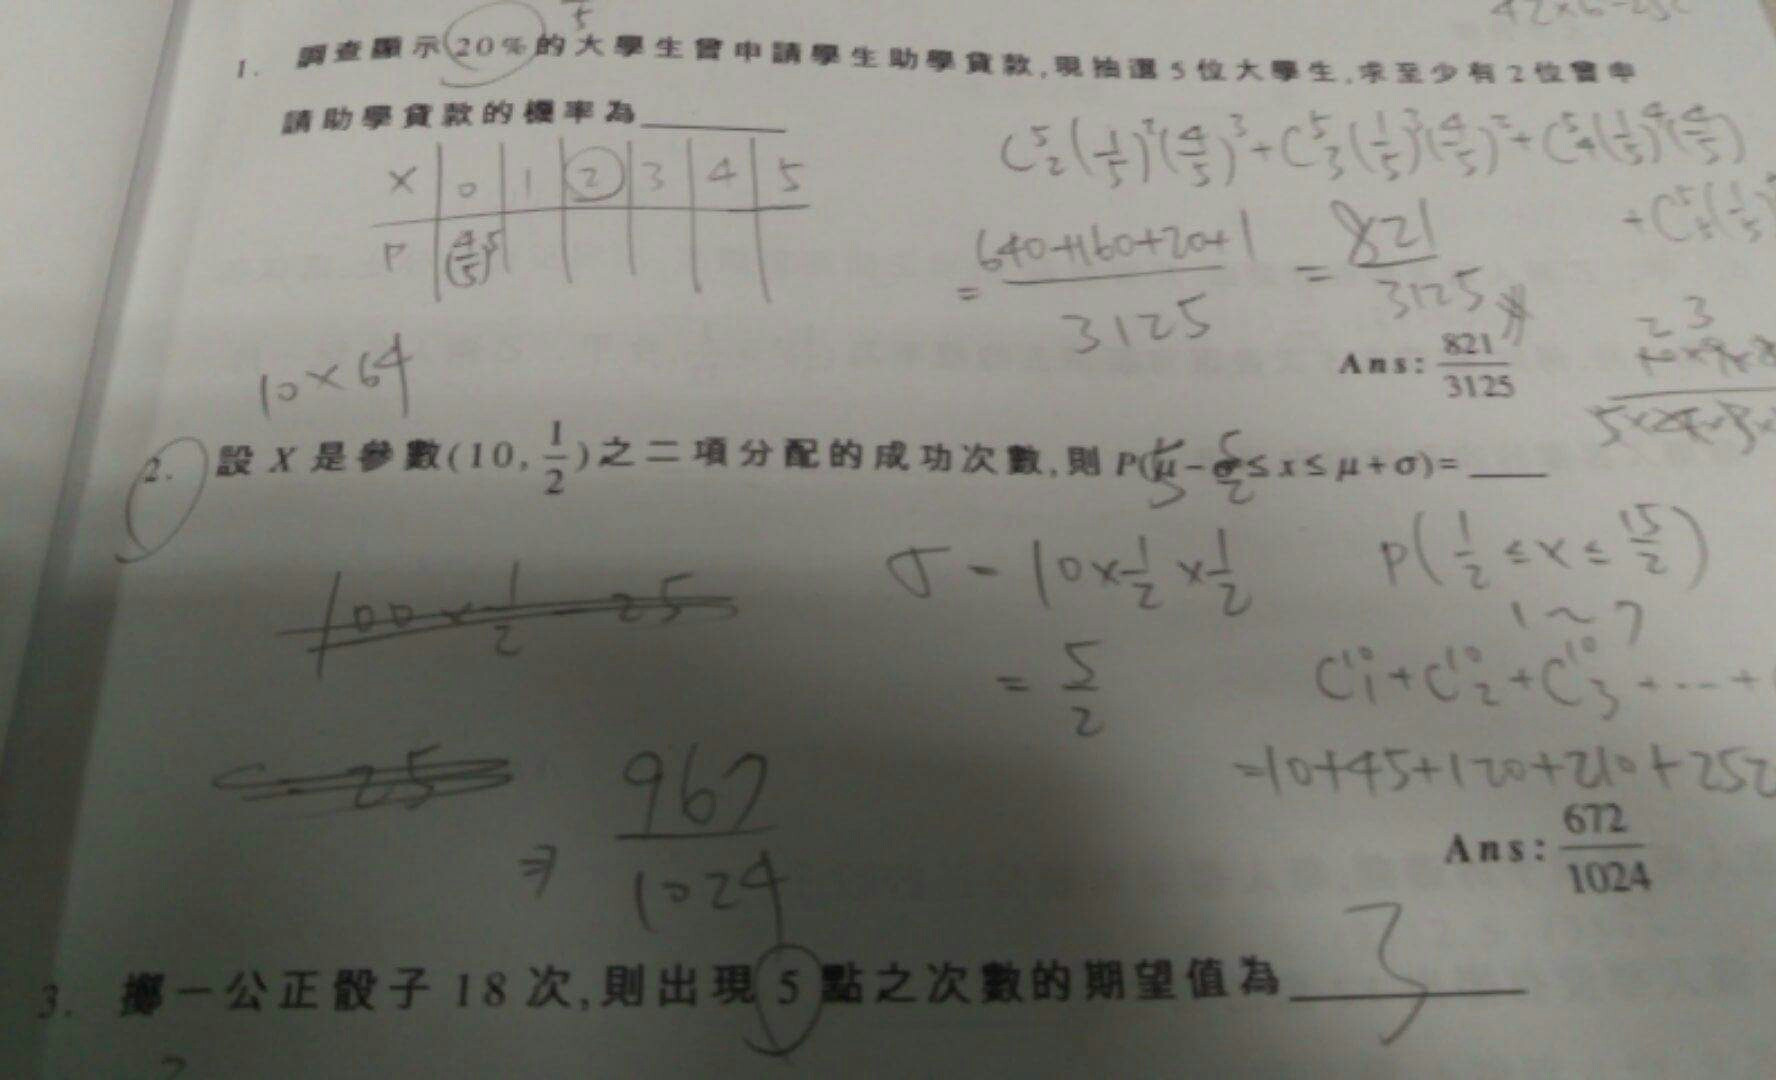 1. 調查顯示20%的大學生曾申請學生助學貸款,現抽選5位大學生,求至少有2位曾申
請助學貸款的機率為______
C⁵₂(1/5)²(4/5)³+C⁵₃(1/5)³(4/5)²+C⁵₄(1/5)⁴(4/5)
X 0 1 2 3 4 5
P (4/5)⁵
=640+160+20+1/3125 = 821/3125
Ans: 821/3125
10×64
2. 設X是參數(10, 1/2)之二項分配的成功次數,則P(μ-σ≤x≤μ+σ)=____
σ = 10×1/2×1/2
P(1/2 ≤x≤ 15/2)
100×1/2 25
1~7
= 5/2
C¹⁰₁+C¹⁰₂+C¹⁰₃+...+
25
=10+45+120+210+252
⇒ 967/1024
Ans: 672/1024
3. 擲一公正骰子18次,則出現5點之次數的期望值為 3